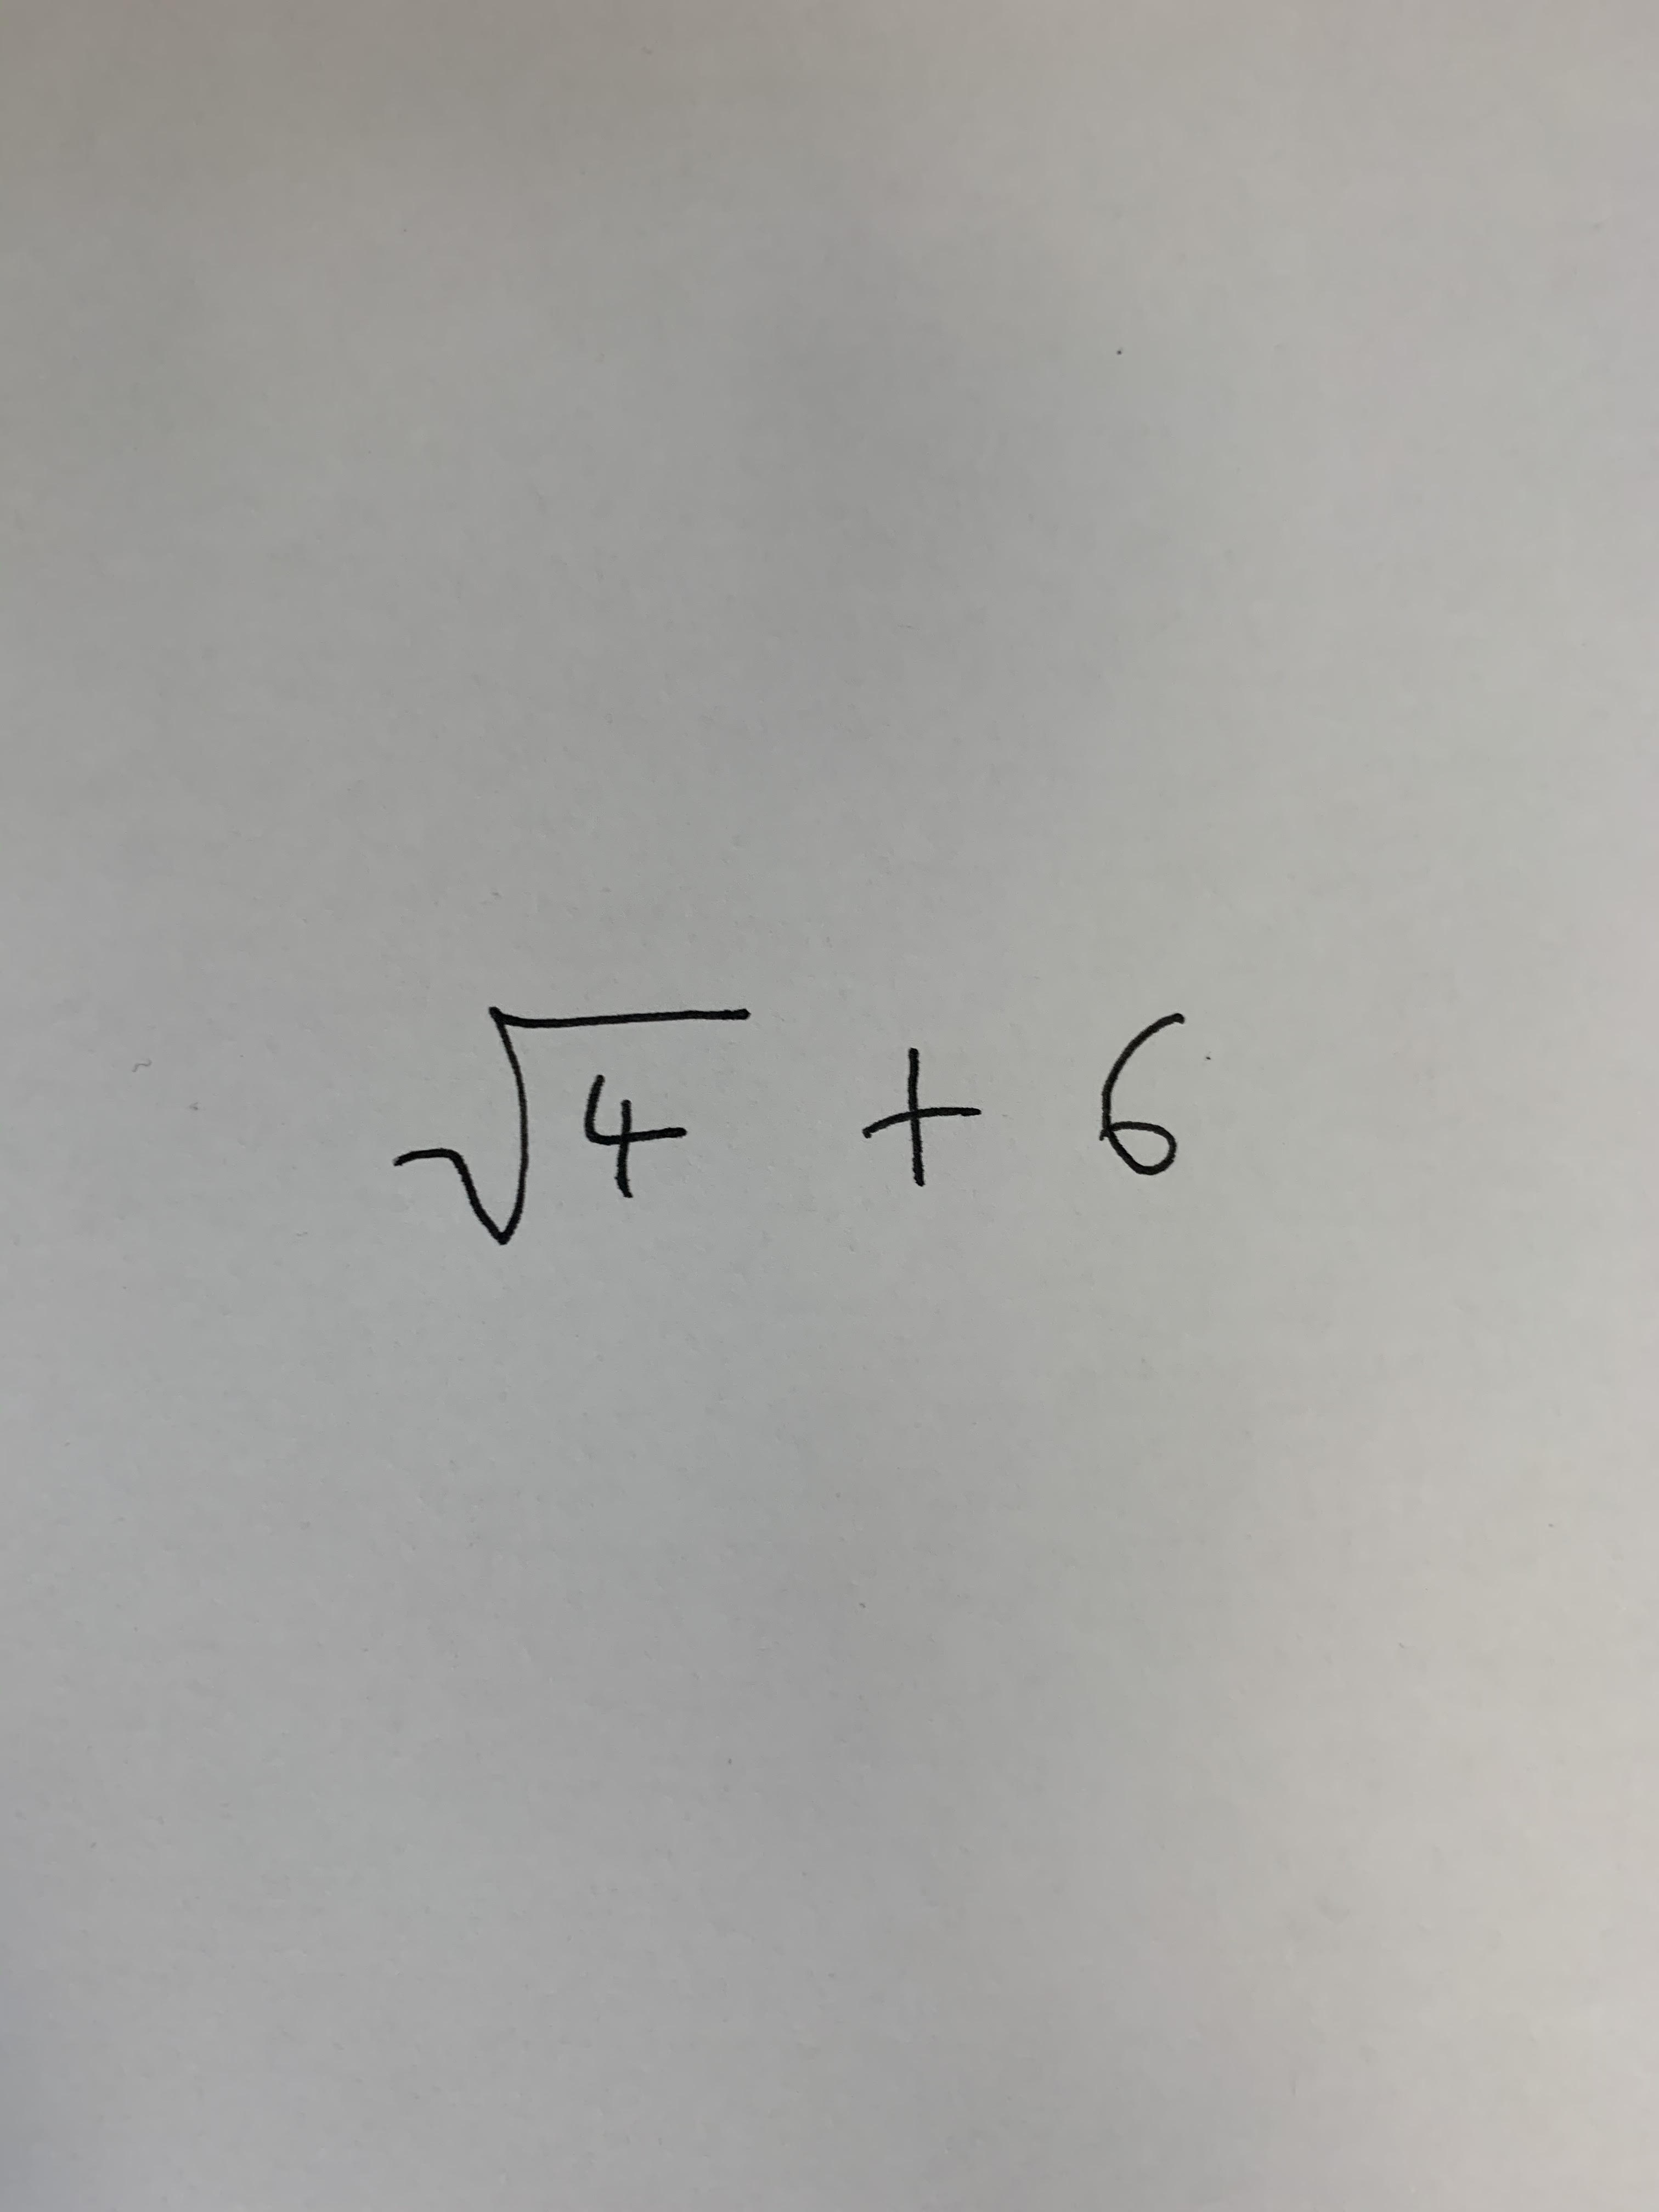 √4 + 6